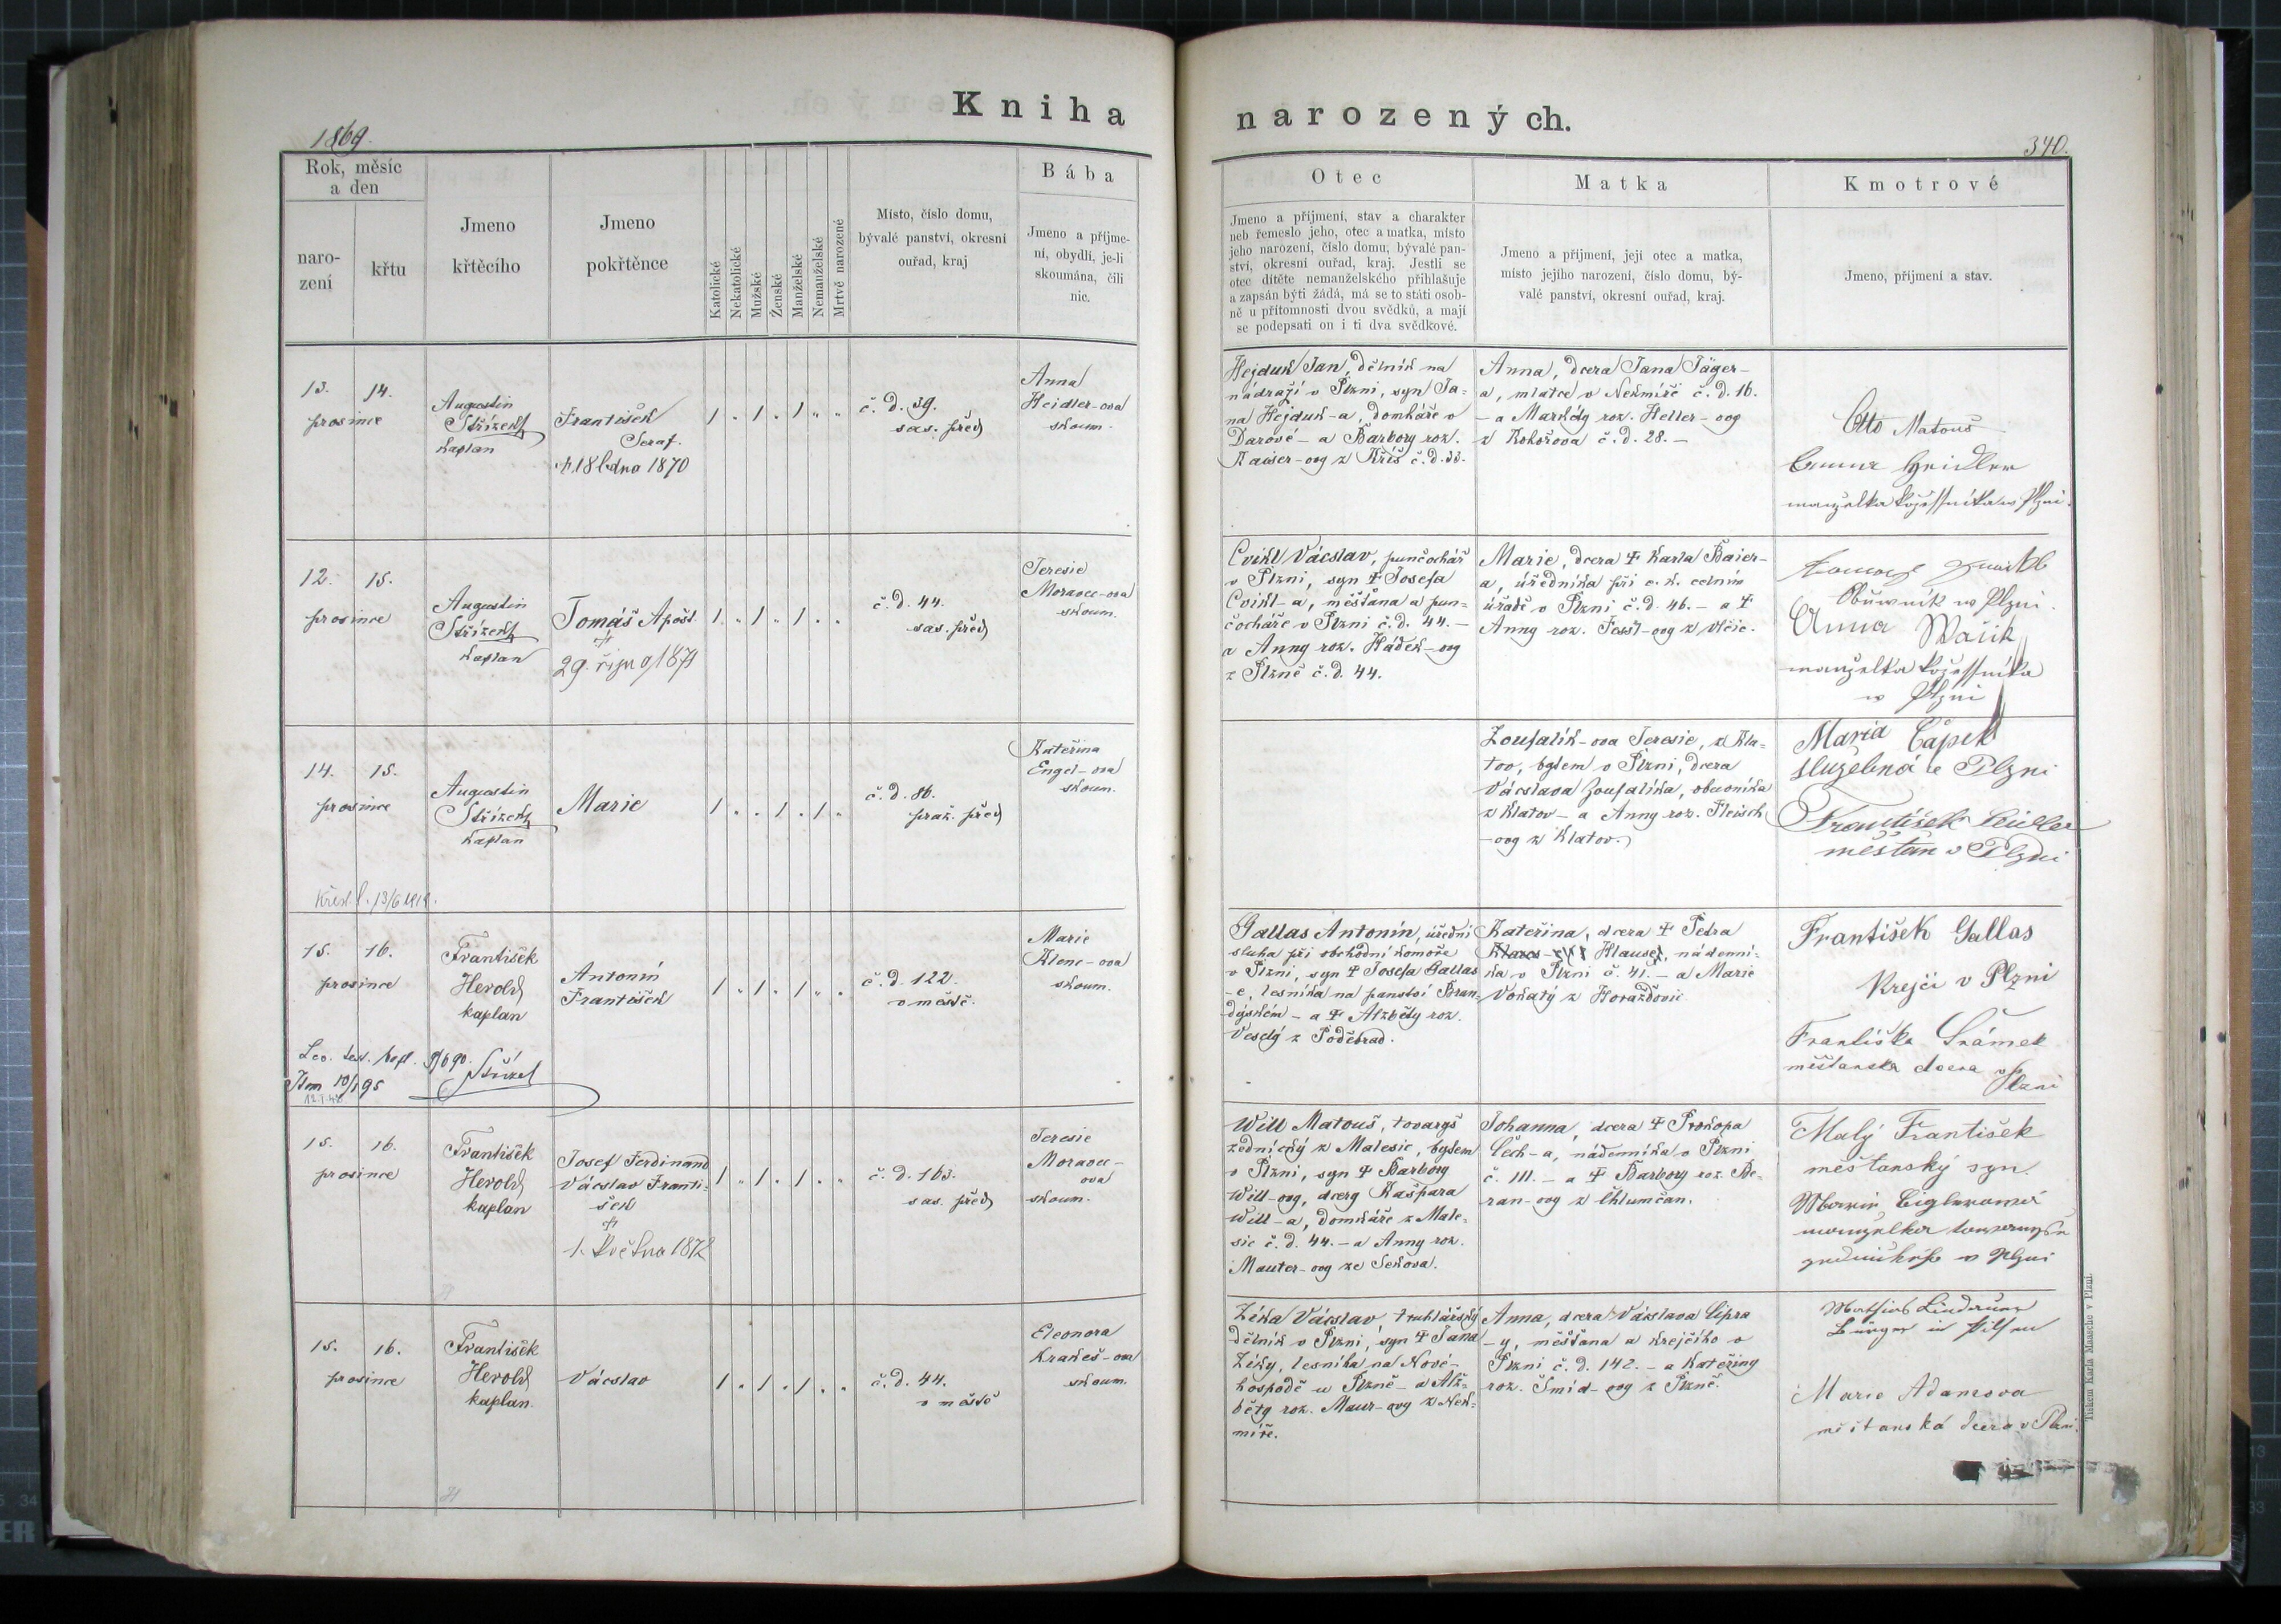 Kniha
narozených.
1869.
340.
Rok, měsíc
a den
naro-
zení
křtu
Jmeno
křtěcího
Jmeno
pokřtěnce
Katolické
Nekatolické
Mužské
Ženské
Manželské
Nemanželské
Mrtvě narozené
Místo, číslo domu,
bývalé panství, okresní
ouřad, kraj
Bába
Jmeno a příjme-
ní, obydlí, je-li
skoumána, čili
nic.
Otec
Jmeno a příjmení, stav a charakter
neb řemeslo jeho, otec a matka, místo
jeho narození, číslo domu, bývalé pan-
ství, okresní ouřad, kraj. Jestli se
otec dítěte nemanželského přihlašuje
a zapsán býti žádá, má se to státi osob-
ně u přítomnosti dvou svědků, a mají
se podepsati on i ti dva svědkové.
Matka
Jmeno a příjmení, její otec a matka,
místo jejího narození, číslo domu, bý-
valé panství, okresní ouřad, kraj.
Kmotrové
Jmeno, příjmení a stav.
13. 14.
prosince
Augustin
Střízek
kaplan
František
Seraf.
18 ledna 1870
1 „ 1 . 1 „ „
č. d. 39.
sas. před
Anna
Heidler-ova
skoum.
Hejduk Jan, dělník na
nádraží v Plzni, syn Ja-
na Hejduk-a, domkáře v
Darové - a Barbory roz.
Kaiser-ovy z Kříš č. d. 33.
Anna, dcera Jana Jäger-
a, mlatce v Nekmíři č. d. 16.
- a Markéty roz. Heller-ovy
z Kokořova č. d. 28. -
Otto Matouš
Anna Heidler
manželka v Plzni.
12. 15.
prosince
Augustin
Střízek
kaplan
Tomáš Apošt.
29. října 1871
1 . 1 . 1 . .
č. d. 44.
sas. před
Teresie
Moravec-ova
skoum.
Cvikl Václav, punčochář
v Plzni, syn † Josefa
Cvikl-a, měšťana a pun-
čocháře v Plzni č. d. 44. -
a Anny roz. Hádek-ovy
z Plzně č. d. 44.
Marie, dcera † Karla Baier-
a, úředníka při c. k. celním
úřadě v Plzni č. d. 46. - a †
Anny roz. -ovy z Vlčic.
Obuwník w Plzni.
Anna Wašik
manželka
w Plzni
14. 15.
prosince
Augustin
Střízek
kaplan
Marie
1 . . 1 . 1 .
č. d. 86.
praž. před
Kateřina
Engel-ova
skoum.
Křest. l. 13/6 1919.
Zoufalík-ova Teresie, z Kla-
tov, bytem v Plzni, dcera
Václava Zoufalíka, obuvníka
z Klatov - a Anny roz. Fleisch
-ovy z Klatov.
Maria Čapek
služebná v Plzni
František Heidler
měšťan v Plzni
15. 16.
prosince
František
Herold
kaplan
Antonín
František
1 . 1 . 1 . .
č. d. 122.
v městě.
Marie
Klenc-ova
skoum.
9/6 90. Střízek
10/1 95
12. 1. 40
Gallas Antonín, úřední
sluha při obchodní komoře
v Plzni, syn † Josefa Gallas
-e, lesníka na panství Bran-
dýském - a † Alžběty roz.
Veselý z Poděbrad.
Kateřina, dcera † Petra
Klause, nádenní-
ka v Plzni č. 41. - a Marie
Vokatý z Horažďovic
František Gallas
Krejčí v Plzni
Františka Šrámek
měšťanská dcera v Plzni
15. 16.
prosince
František
Herold
kaplan
Josef Ferdinand
Václav Franti-
šek
1. Května 1872
1 „ 1 . 1 . .
č. d. 163.
sas. před
Teresie
Moravec-
ova
skoum.
Will Matouš, tovaryš
zednický z Malesic, bytem
v Plzni, syn † Barbory
Will-ovy, dcery Kašpara
Will-a, domkáře z Male-
sic č. d. 44. - a Anny roz.
Mauter-ovy ze Sekova.
Johanna, dcera † Prokopa
Čech-a, nádenníka v Plzni
č. 111. - a † Barbory roz. Be-
ran-ovy z Chlumčan.
Malý František
měšťanský syn.
Marie Ciglerowa
manželka towaryše
zednického w Plzni
15. 16.
prosince
František
Herold
kaplan.
Václav
1 . 1 . 1 . .
č. d. 44.
v městě
Eleonora
Krakeš-ova
skoum.
Zíka Václav, truhlářský
dělník v Plzni, syn † Jana
Zíky, lesníka na Nové-
hospodě u Plzně - a Alž-
běty roz. Maur-ovy z Nek-
míře.
Anna, dcera Václava Cipra
-y, měšťana a krejčího v
Plzni č. d. 142. - a Kateřiny
roz. Šmíd-ovy z Plzně.
Mathias Lindauer
Bürger in Pilsen
Marie Adamova
měšťanská dcera v Plzni.
Tiskem Karla Maasche v Plzni.